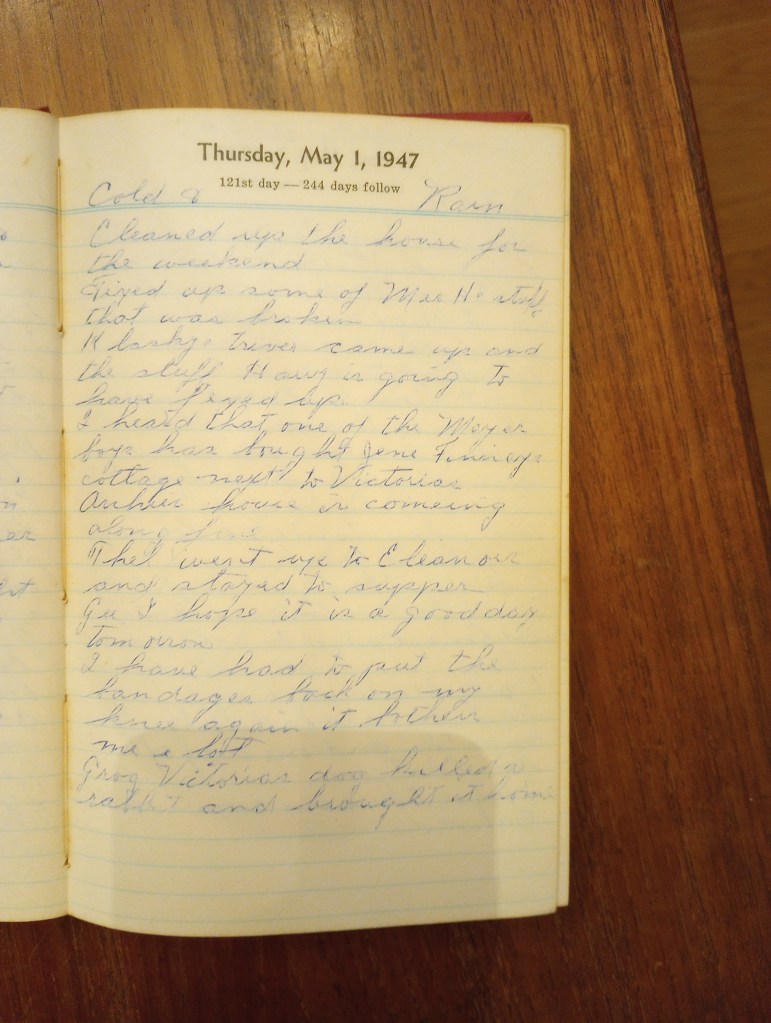 Thursday, May 1, 1947
121st day — 244 days follow
Cold & Rain
Cleaned up the house for
the weekend
Fixed up some of Mrs H. stuff
that was broken
came up and
the stuff is going to
have fixed up.
I heard that one of the Meyer
boys has bought Jene Finneys
cottage next to Victorias
house is comeing
along fine
Thel went up to Eleanors
and stayed to supper
Gee I hope it is a good day
tomorrow
I have had to put the
bandages back on my
knee again it bothers
me a lot
Grog Victorias dog killed a
rabbit and brought it home